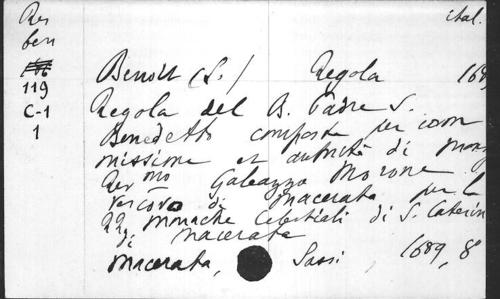 ital.
Res
ben
119
C-1
1
Benoit (S.) Regola 168
Regola del B. Padre S.
Benedetto composta per com
missione et autorità di Mons
Rev mo Galeazzo Morone
Vescovo di Macerata per le
RR Monache Celestiali di S. Caterin
di Macerata
Macerata, Sassi, 1689, 8°